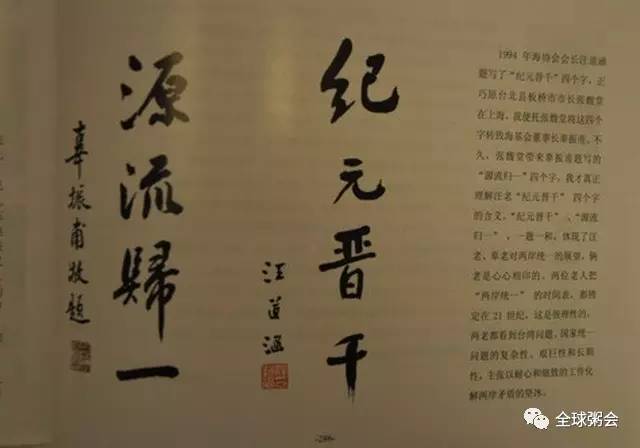 纪元晋千
汪道涵
源流歸一
辜振甫敬题
1994 年海协会会长汪道涵
题写了“纪元晋千”四个字，正
巧原台北县板桥市市长张魏堂
在上海，我便托张魏堂将这四个
字转致海基会董事长辜振甫。不
久，张魏堂带来辜振甫题写的
“源流归一”四个字，我才真正
理解汪老“纪元晋千” 四个字
的含义。“纪元晋千”、“源流
归一”，一题一和，体现了汪
老、辜老对两岸统一的展望，俩
老是心心相印的。两位老人把
“两岸统一” 的时间表，都推
定在 21 世纪，这是很理性的。
两老都看到台湾问题、国家统一
问题的复杂性、艰巨性和长期
性，主张以耐心和细致的工作化
解两岸矛盾的坚冰。
全球粥会